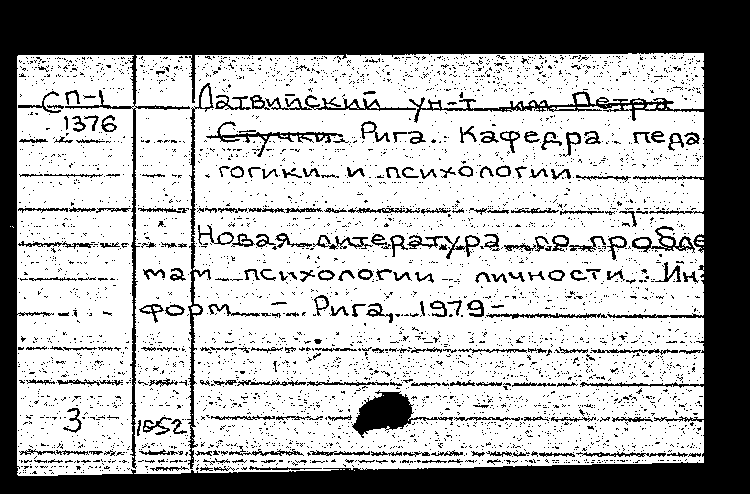 СП-1 Латвийский ун-т им Петра
1376 Стучки. Рига. Кафедра педа
гогики и психологии.
Новая литература по пробле
мам психологии личности: Ин
форм. - Рига, 1979-
3 1852